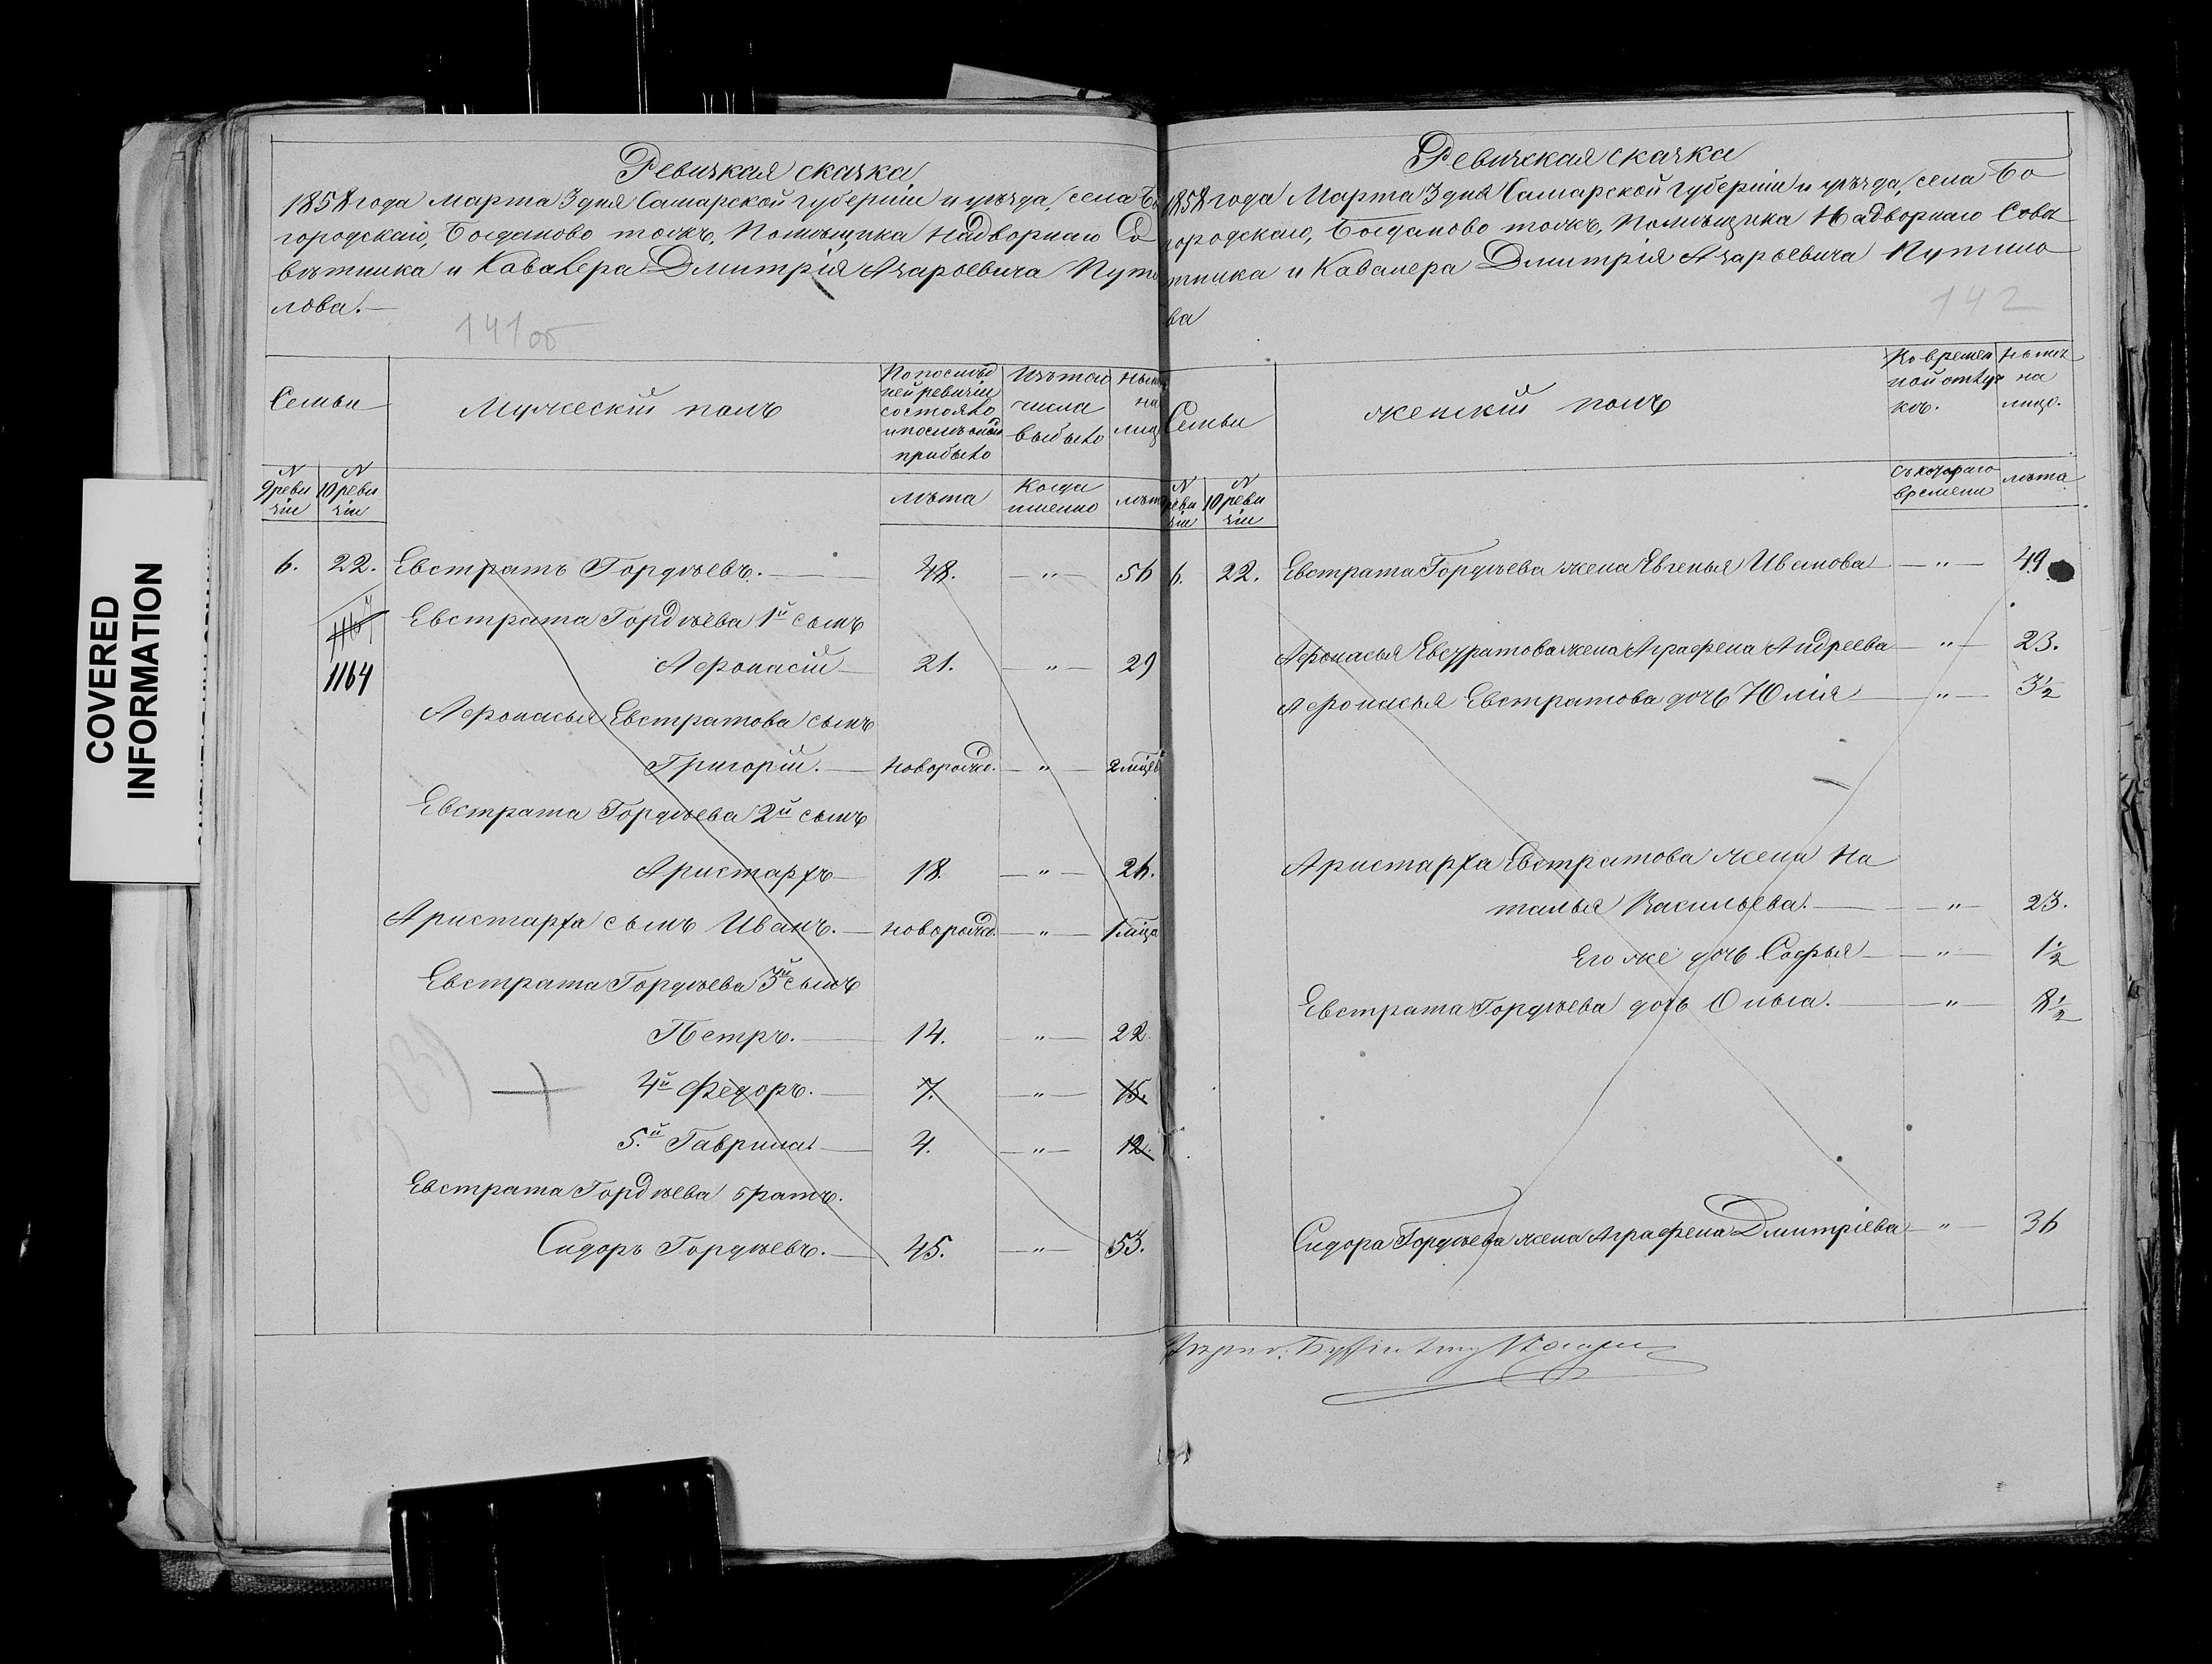 COVERED
INFORMATION
Ревизкая сказка
1858 года Марта 3 дня Самарской губерніи и уѣзда, села Бо
городскаго, Богданово тожъ, Помѣщика Надворнаго Со
вѣтника и Кавалера Дмитрія Азарьевича Пути
лова.
141об
Семьи
Мужескій полъ
По послѣд
ней ревизіи
состояло
и послѣ оной
прибыло
Изъ того
числа
выбыло
Нынѣ
на
лицо
N
9 реви
зіи
N
10 реви
зіи
лѣта
Когда
именно
лѣта
6. 22. Евстратъ Гордѣевъ. 48. " 56
Евстрата Гордѣева 1й сынъ
1164
Афонасій 21. " 29
Афонасья Евстратова сынъ
Григорій. новорожд. " 2 мѣцев
Евстрата Гордѣева 2й сынъ
Аристархъ 18. " 26.
Аристарха сынъ Иванъ. новорожд. " 1 мѣца
Евстрата Гордѣева 3й сынъ
Петръ. 14. " 22.
4й Федоръ. 7. " 15.
5й Гаврила. 4. " 12.
Евстрата Гордѣева братъ.
Сидоръ Гордѣевъ. 45. " 53.
Ревизская сказка
1858 года Марта 3 дня Самарской губерніи и уѣзда, села Бо
городскаго, Богданово тожъ, Помѣщика Надворнаго Совѣ
тника и Кавалера Дмитрія Азарьевича Путило
ва
142
Семьи
женскій полъ
Во времен
ной отлуч
кѣ.
Нынѣ
на
лицо.
N
реви
зіи
N
10 реви
зіи
съ котораго
времени
лѣта
6. 22. Евстрата Гордѣева жена Евгенья Иванова " 49
Афонасья Евстратова жена Аграфена Андреева " 23.
Афонасья Евстратова дочь Юлія " 3½
Аристарха Евстратова жена На
талья Васильева. " 23.
Его же дочь Софья " 1½
Евстрата Гордѣева дочь Ольга. " 8½
Сидора Гордѣева жена Аграфена Дмитріева " 36